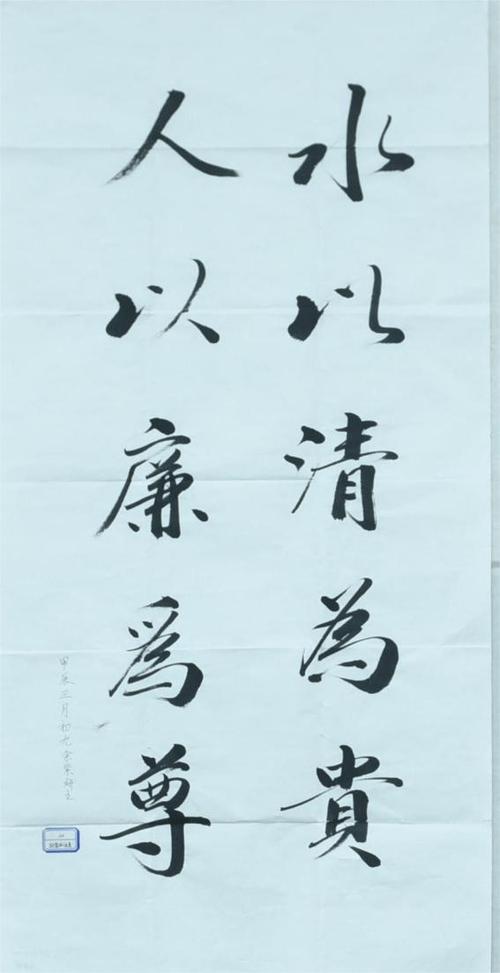 水以清為貴
人以廉爲尊
甲辰三月初九